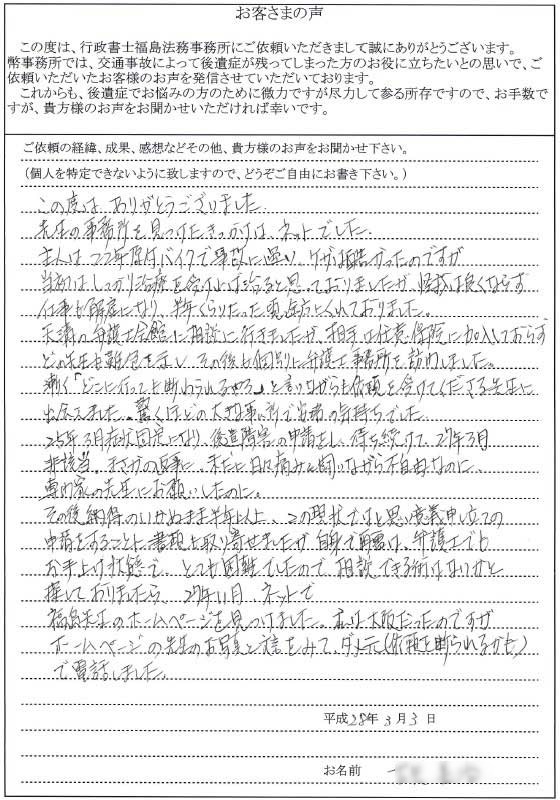 お客さまの声
この度は、行政書士福島法務事務所にご依頼いただきまして誠にありがとうございます。
幣事務所では、交通事故によって後遺症が残ってしまった方のお役に立ちたいとの思いで、ご
依頼いただいたお客様のお声を発信させていただいております。
これからも、後遺症でお悩みの方のために微力ですが尽力して参る所存ですので、お手数で
すが、貴方様のお声をお聞かせいただければ幸いです。
ご依頼の経緯、成果、感想などその他、貴方様のお声をお聞かせ下さい。
（個人を特定できないように致しますので、どうぞご自由にお書き下さい。）
この度は ありがとうございました。
先生の事務所を見つけたきっかけは、ネットでした。
主人は 22年原付バイクで事故に遭い、ケガは酷かったのですが
当初はしっかり治療を受ければ治ると思っておりましたが、怪我は良くならず
仕事も解雇になり、半年くらいたった頃途方にくれておりました。
天満の弁護士会館に相談に行きましたが、相手は任意保険に加入しておらず
どの先生も難色を示し その後も個別に弁護士事務所を訪ねました。
漸く「どこに行っても断わられるやろ」と言いながらも依頼を受けてくださる先生に
出会えました。驚くほどの大きな事務所で安堵の気持ちでした。
25年3月症状固定になり、後遺障害の申請をし、待ち続けて、27年3月
非該当。まさかの返事に、未だに日々痛みと闘いながら不自由なのに
専門家の先生にお願いしたのに。
その後納得のいかぬまま半年以上、この現状ではと思い意義申し立ての
申請をすることに 書類を取り寄せましたが 自身で再度は、弁護士でも
お手上げ状態で、とても困難でしたので 相談できる術はないかと
探しておりましたら、27年11月 ネットで
福島先生のホームページを見つけました。私は大阪だったのですが
ホームページの先生のお写真と文言をみて、ダメ元(依頼を断られるかも)
で電話しました。
平成28年 3月 3日
お名前